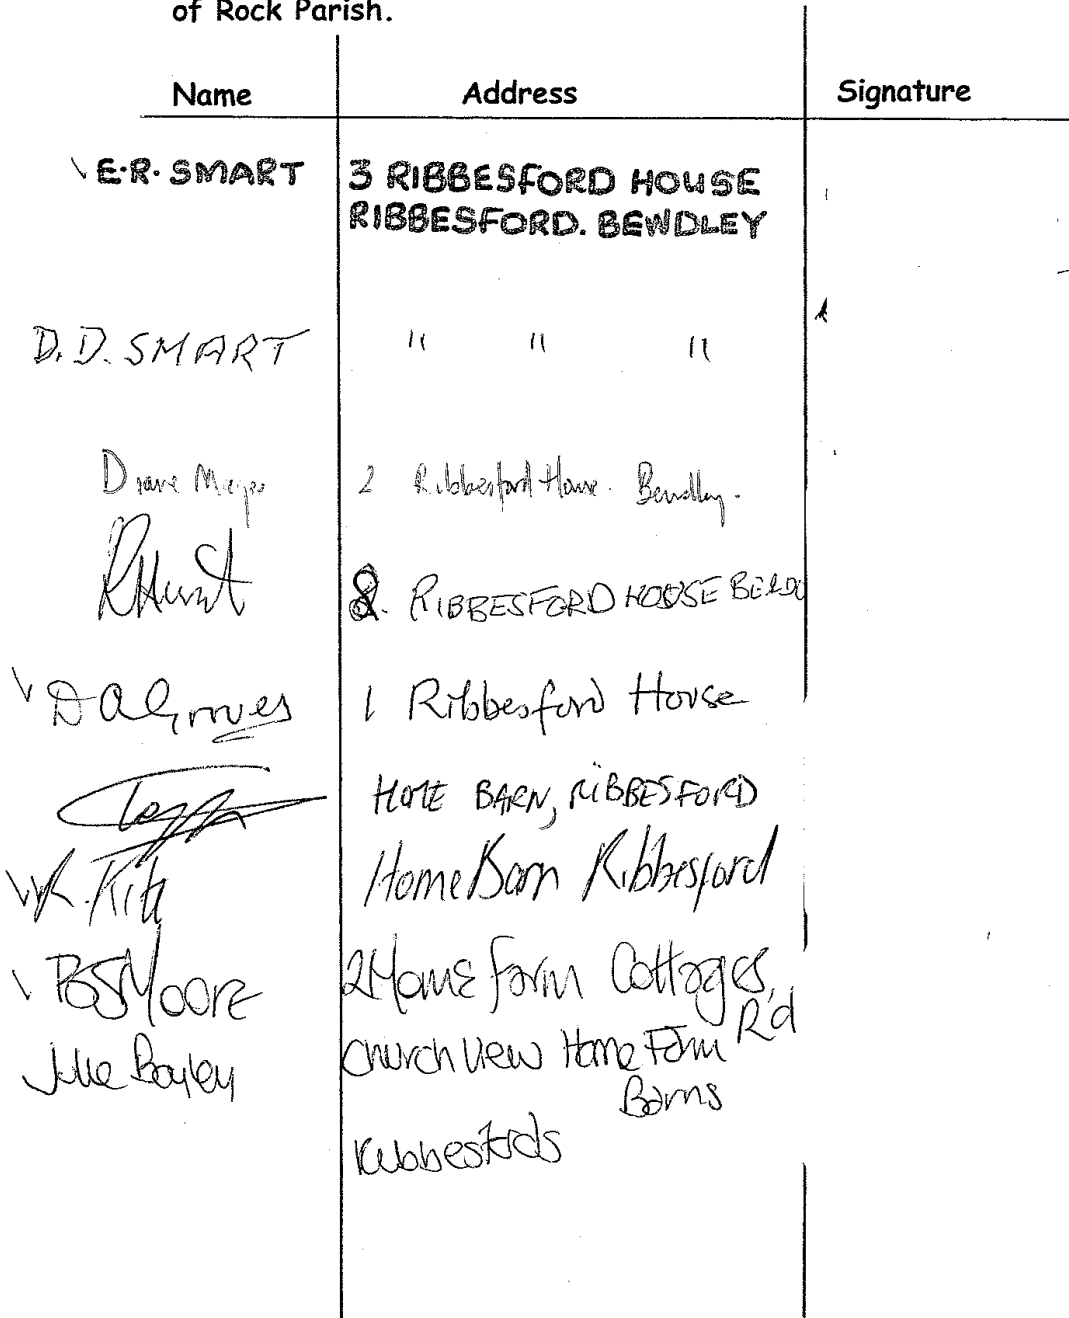 of Rock Parish.
Name Address Signature
E.R. SMART 3 RIBBESFORD HOUSE
RIBBESFORD. BEWDLEY
D.D. SMART " " "
Diane 2 Ribbesford House. Bewdley.
R Hunt 8. RIBBESFORD HOUSE
D A Groves 1 Ribbesford House
HOME BARN, RIBBESFORD
Home Barn Ribbesford
Moore 2 Home Farm Cottages,
R'd
Julie Bayley Church View Home Farm
Barns
Ribbesfords